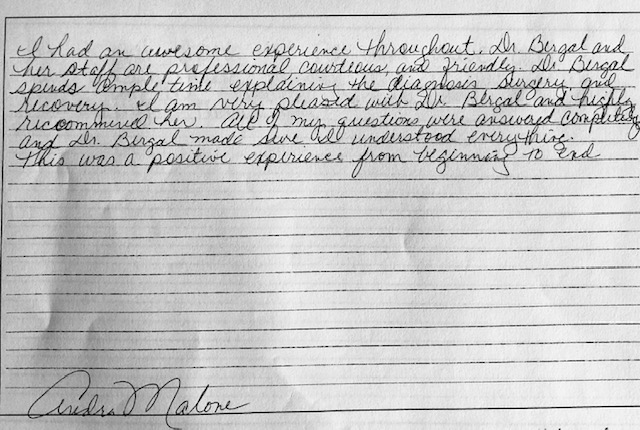 I had an awesome experience throughout. Dr. Bergal and
her staff are professional, courteous, and friendly. Dr Bergal
spends ample time explaining the diagnosis surgery and
recovery. I am very pleased with Dr. Bergal and highly
recommend her. All of my questions were answered completely
and Dr. Bergal made sure I understood everything.
This was a positive experience from beginning to end
Malone